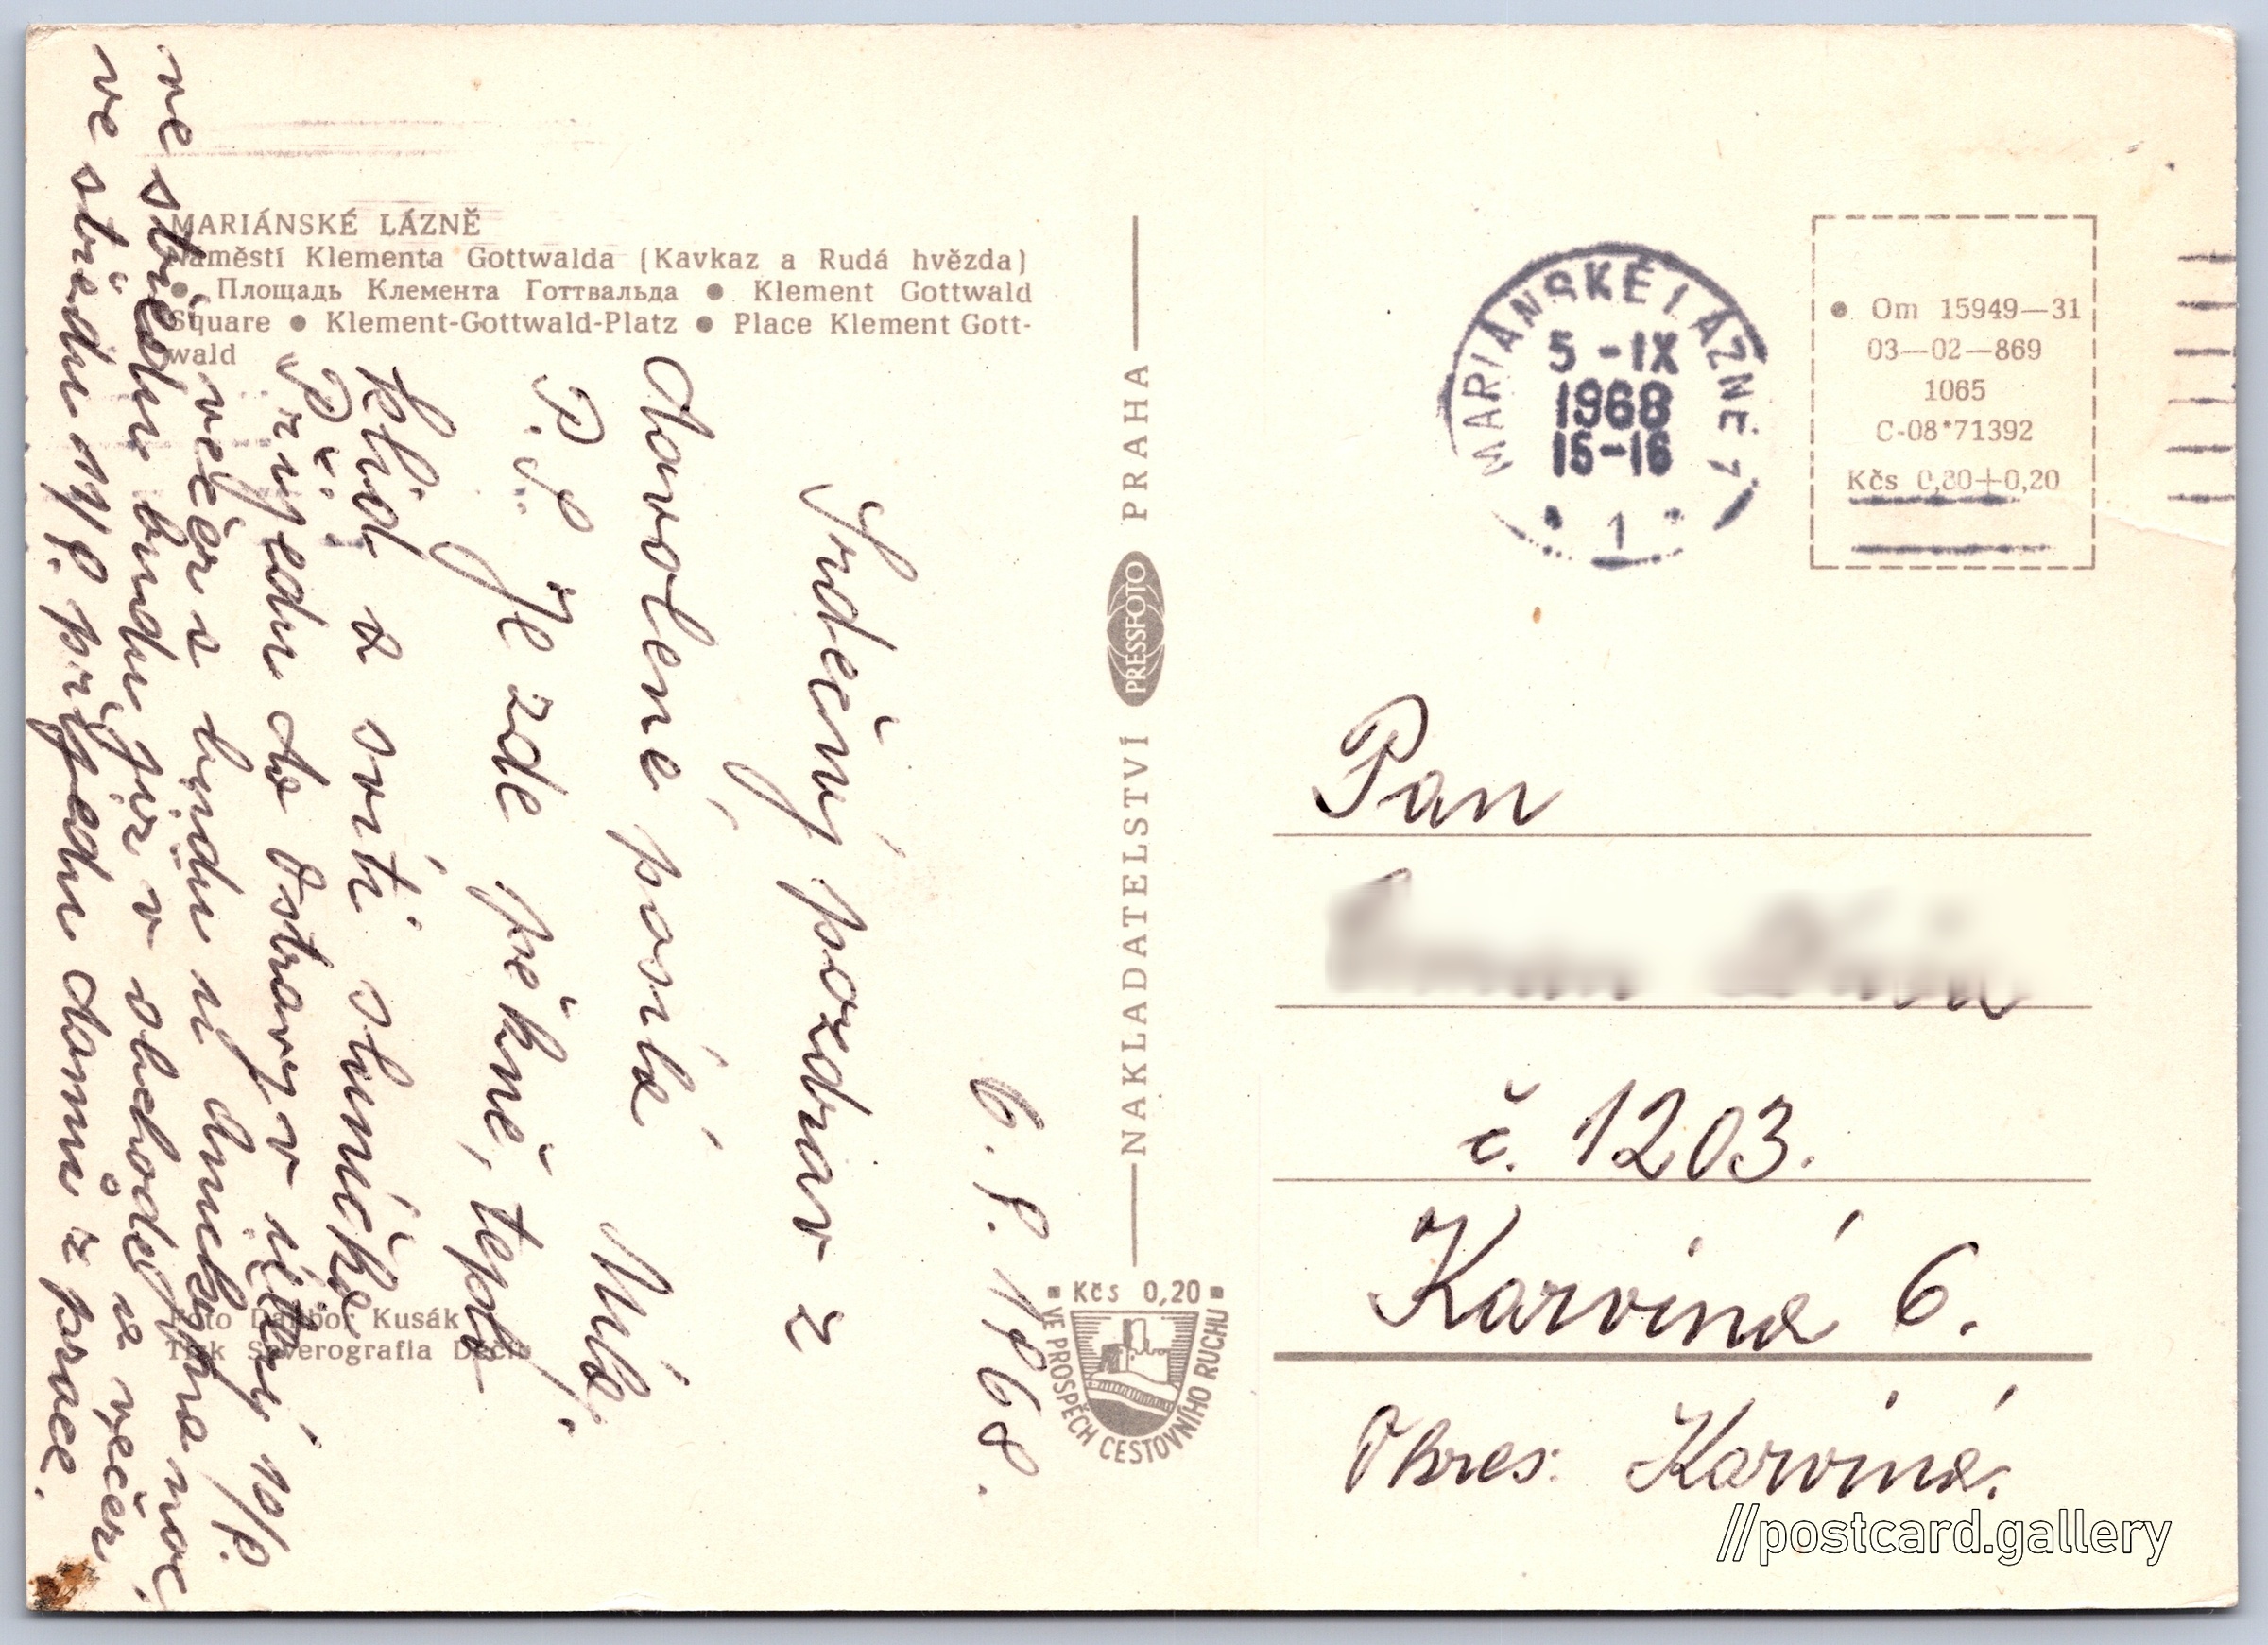 MARIÁNSKÉ LÁZNĚ
Náměstí Klementa Gottwalda (Kavkaz a Rudá hvězda)
● Площадь Клемента Готтвальда ● Klement Gottwald
Square ● Klement-Gottwald-Platz ● Place Klement Gott-
wald
6. 9. 1968.
Srdečný pozdrav z
dovolené posílá
P.S. Je zde pěkně, teplo
klid a svítí sluníčko
Přijedu do Ostravy v úterý 10/9.
večer s
ve středu budu již v obchodě a večer
ve středu 11/9. přijedu domů z práce.
Foto Dalibor Kusák
Tisk Severografia Děčín
NAKLADATELSTVÍ PRESSFOTO PRAHA
Kčs 0,20
VE PROSPĚCH CESTOVNÍHO RUCHU
MARIÁNSKÉ LÁZNĚ 1
5 -IX
1968
15-16
1
● Om 15949—31
03—02—869
1065
C-08*71392
Kčs 0,30+0,20
Pan
č. 1203.
Karviná 6.
Okres: Karviná.
//postcard.gallery